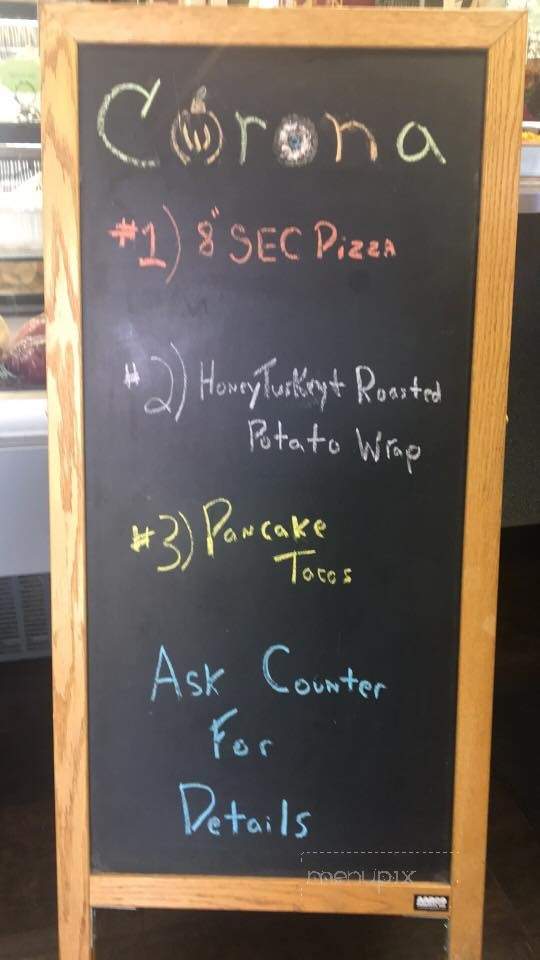 Corona
#1) 8" SEC Pizza
#2) Honey Turkey + Roasted
Potato Wrap
#3) Pancake
Tacos
Ask Counter
For
Details
menupix